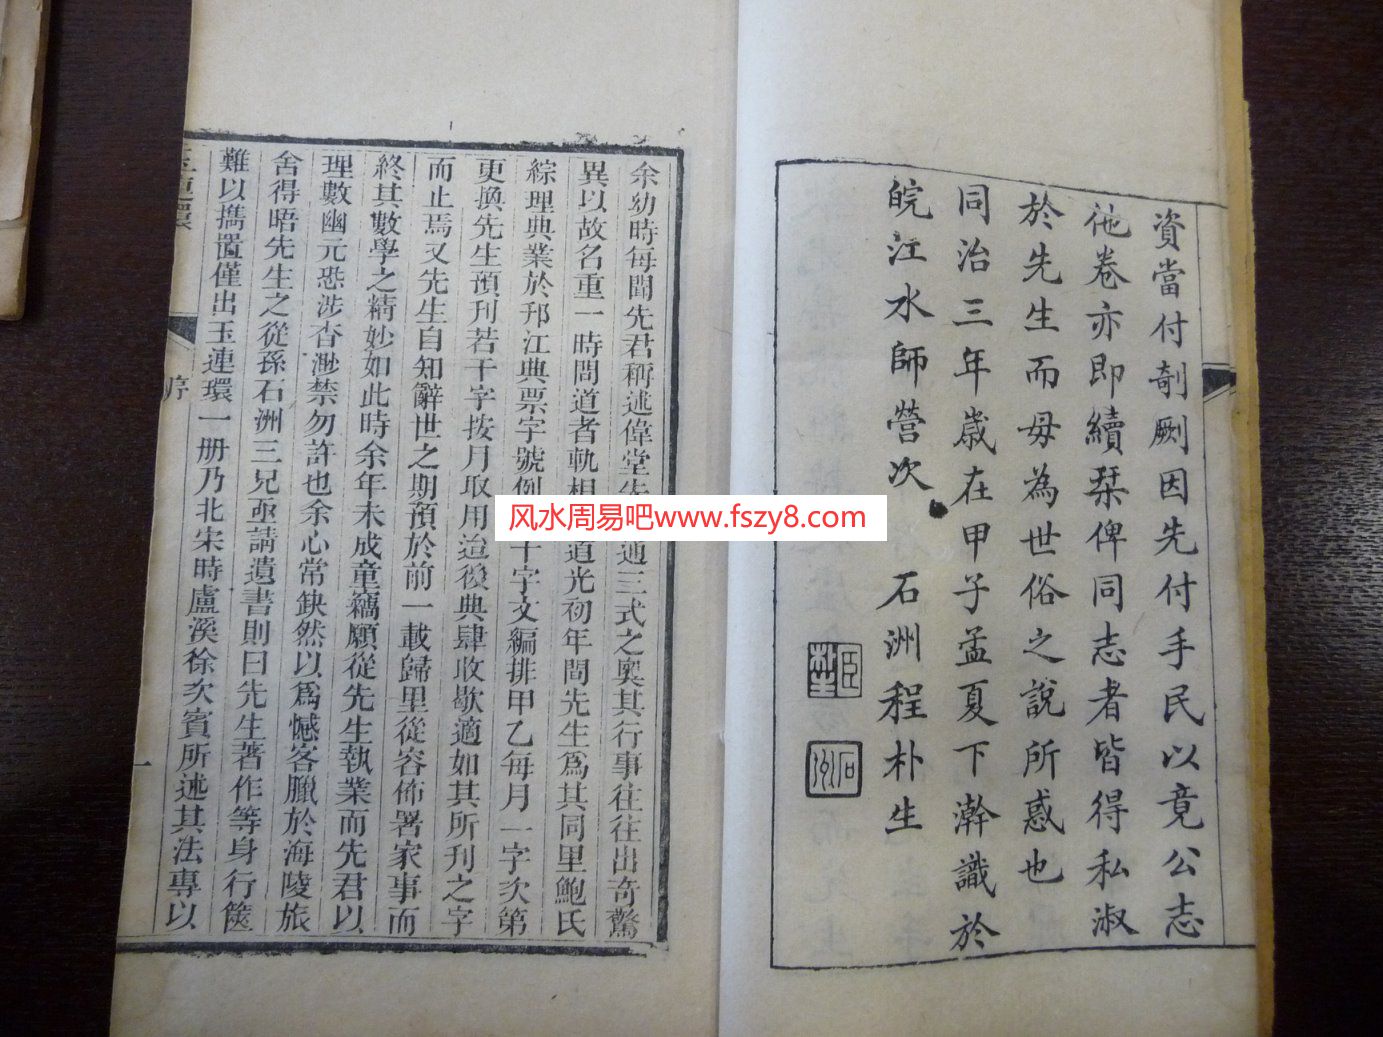 資當付剞劂因先付手民以竟公志
他卷亦即續棊俾同志者皆得私淑
於先生而毋為世俗之說所惑也
同治三年歲在甲子孟夏下澣識於
皖江水師營次 石洲程朴生
石洲
余幼時每聞先君稱述偉堂先 通三式之奧其行事往往出奇驚
異以故名重一時問道者軌相 道光初年間先生為其同里鮑氏
綜理典業於邗江典票字號例 十字文編排甲乙每月一字次第
更換先生預刊若干字按月取用迨後典肆收歇適如其所刊之字
而止焉又先生自知辭世之期預於前一載歸里從容佈署家事而
終其數學之精妙如此時余年未成童竊願從先生執業而先君以
理數幽元恐涉杳渺禁勿許也余心常缺然以為憾客臘於海陵旅
舍得晤先生之從孫石洲三兄亟請遺書則曰先生著作等身行篋
難以擕置僅出玉連環一册乃北宋時盧溪徐次賓所述其法專以
玉連環 序 一
风水周易吧www.fszy8.com